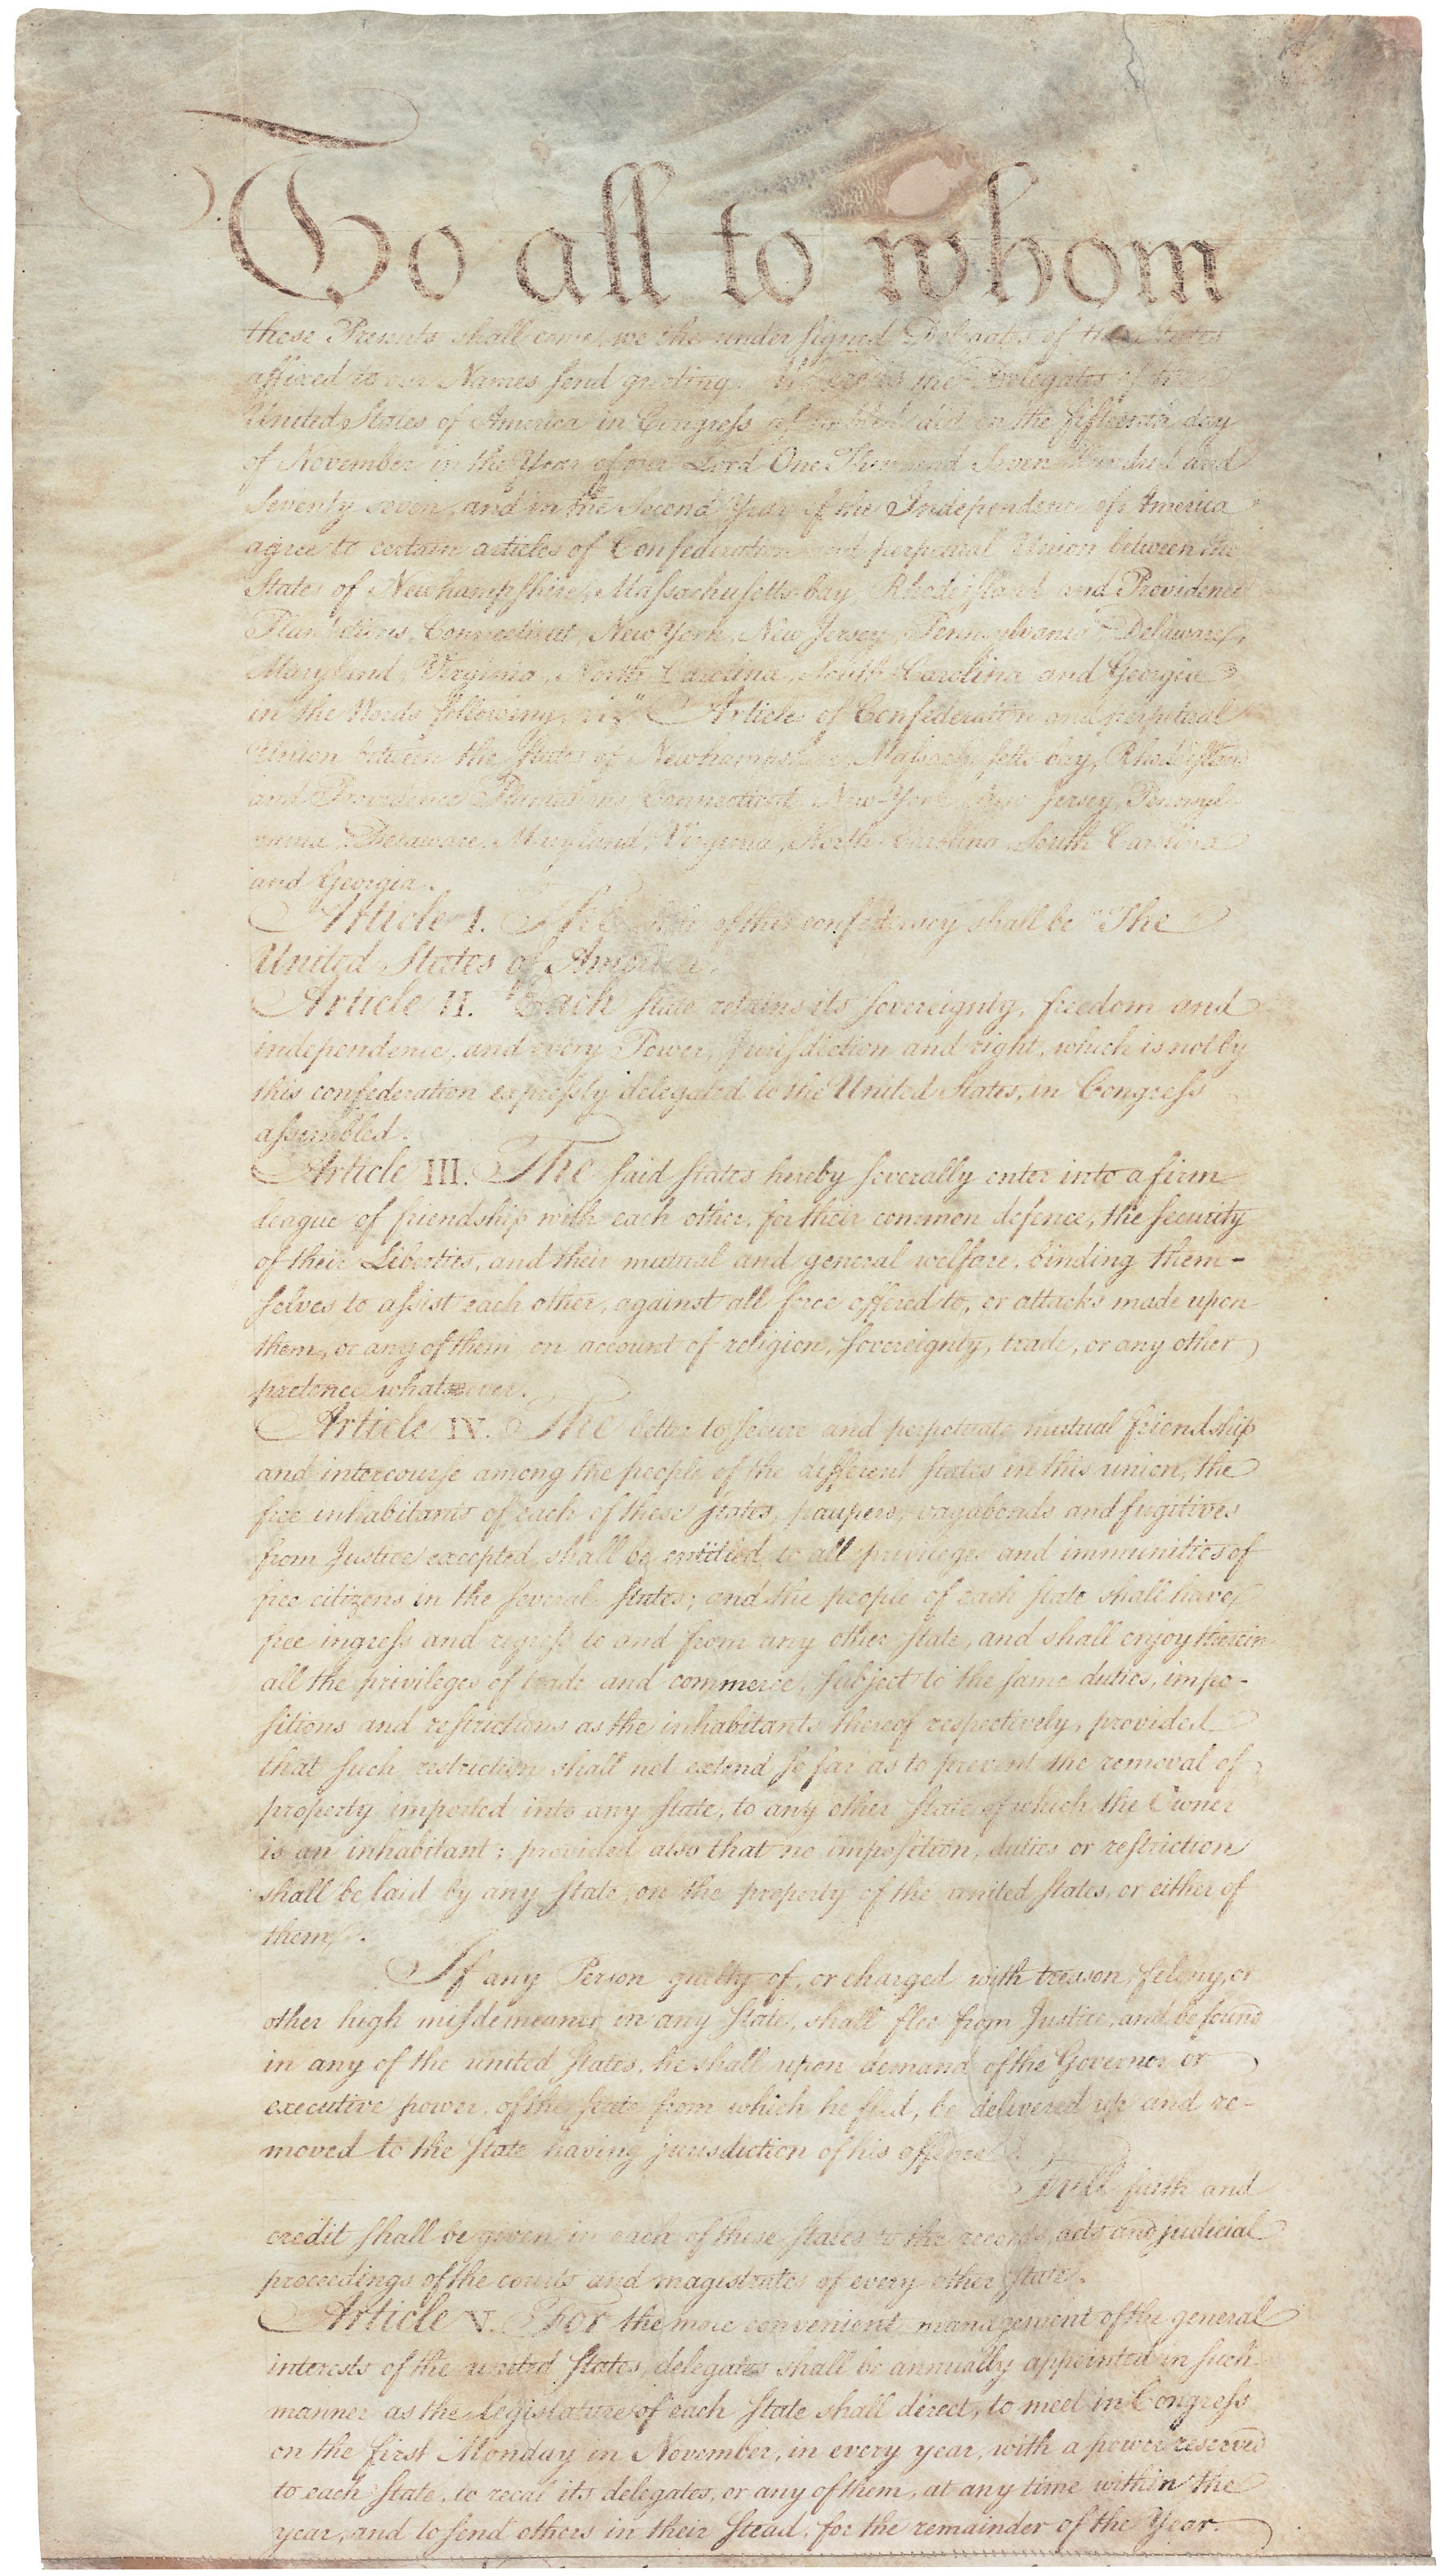 To all to whom
these Presents shall come, we the under signed Delegates of the States
affixed to our Names send greeting. Whereas the Delegates of the
United States of America in Congress assembled did on the fifteenth day
of November in the Year of our Lord One Thousand Seven Hundred and
Seventy seven, and in the Second Year of the Independence of America
agree to certain articles of Confederation and perpetual Union between the
States of Newhampshire, Massachusetts-bay, Rhodeisland and Providence
Plantations, Connecticut, New York, New Jersey, Pennsylvania, Delaware,
Maryland, Virginia, North Carolina, South Carolina and Georgia
in the Words following, viz. "Articles of Confederation and perpetual
Union between the States of Newhampshire, Massachusetts-bay, Rhodeisland
and Providence Plantations, Connecticut, New-York, New Jersey, Pennsyl-
vania, Delaware, Maryland, Virginia, North-Carolina, South-Carolina
and Georgia.
Article I. The Stile of this confederacy shall be "The
United States of America."
Article II. Each state retains its sovereignty, freedom and
independence, and every Power, Jurisdiction and right, which is not by
this confederation expressly delegated to the United States, in Congress
assembled.
Article III. The said states hereby severally enter into a firm
league of friendship with each other, for their common defence, the security
of their Liberties, and their mutual and general welfare, binding them-
selves to assist each other, against all force offered to, or attacks made upon
them, or any of them, on account of religion, sovereignty, trade, or any other
pretence whatever.
Article IV. The better to secure and perpetuate mutual friendship
and intercourse among the people of the different states in this union, the
free inhabitants of each of these states, paupers, vagabonds and fugitives
from Justice excepted, shall be entitled to all privileges and immunities of
free citizens in the several states; and the people of each state shall have
free ingress and regress to and from any other state, and shall enjoy therein
all the privileges of trade and commerce, subject to the same duties, impo-
sitions and restrictions as the inhabitants thereof respectively, provided
that such restriction shall not extend so far as to prevent the removal of
property imported into any state, to any other state of which the Owner
is an inhabitant; provided also that no imposition, duties or restriction
shall be laid by any state, on the property of the united states, or either of
them.
If any Person guilty of, or charged with treason, felony, or
other high misdemeanor in any state, shall flee from Justice, and be found
in any of the united states, he shall upon demand of the Governor or
executive power, of the state from which he fled, be delivered up and re-
moved to the state having jurisdiction of his offence.
Full faith and
credit shall be given in each of these states to the records, acts and judicial
proceedings of the courts and magistrates of every other state.
Article V. For the more convenient management of the general
interests of the united states, delegates shall be annually appointed in such
manner as the legislature of each state shall direct, to meet in Congress
on the first Monday in November, in every year, with a power reserved
to each state, to recal its delegates, or any of them, at any time within the
year, and to send others in their stead, for the remainder of the Year.